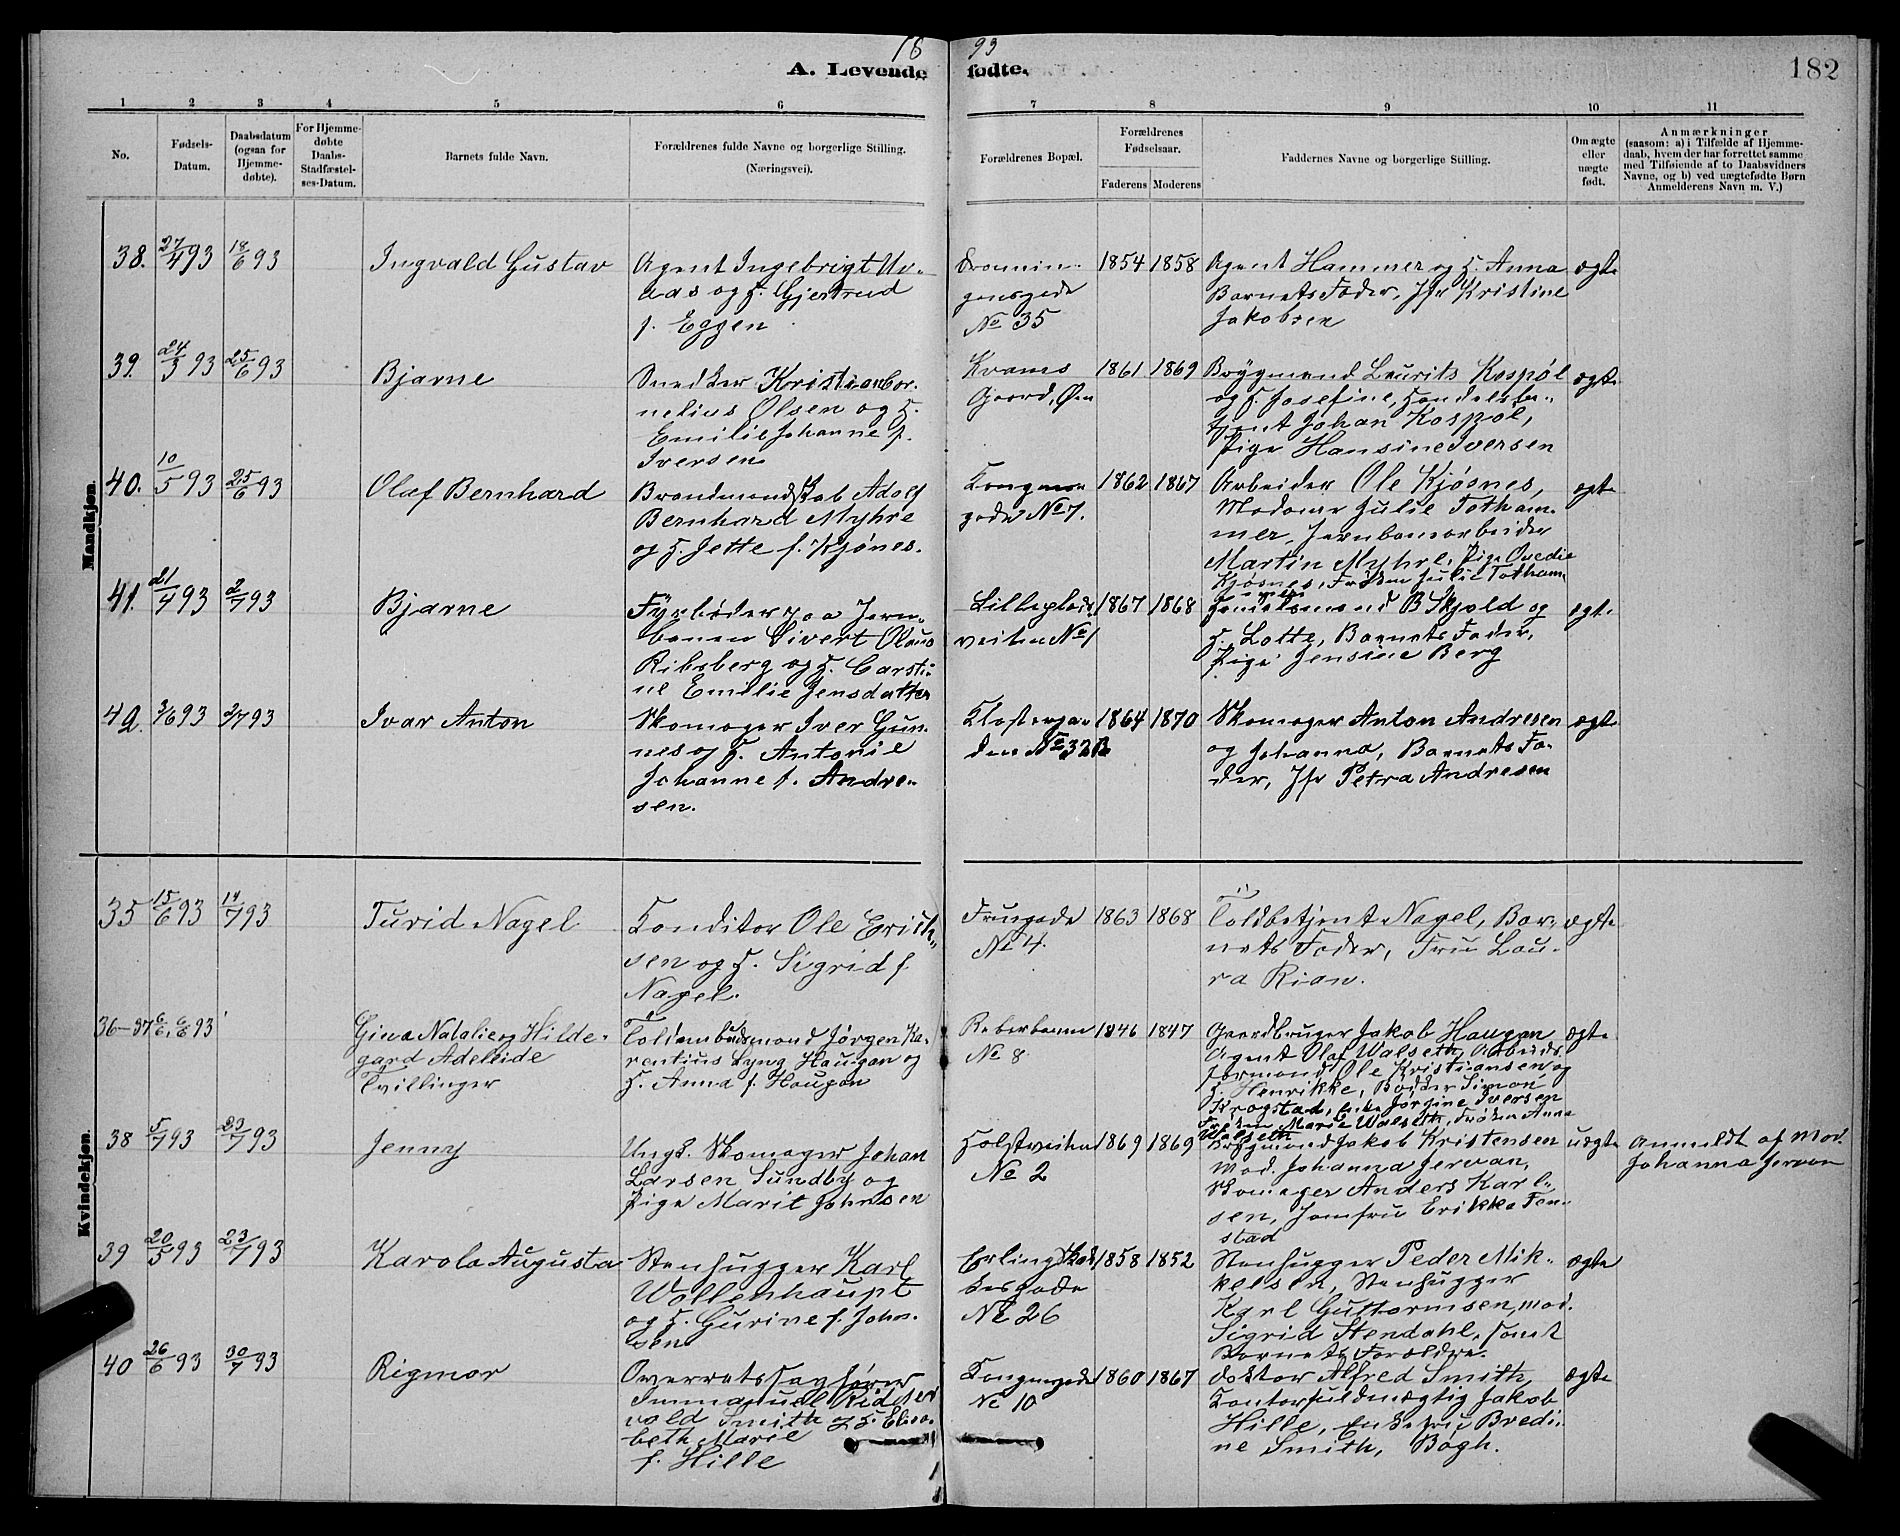 18 93
A. Levende fødte.
182
1 2 3 4 5 6 7 8 9 10 11
No.
Fødsels-
Datum.
Daabsdatum
(ogsaa for
Hjemme-
døbte).
For Hjemme-
døbte
Daabs-
Stadfæstel-
ses-Datum.
Barnets fulde Navn.
Forældrenes fulde Navne og borgerlige Stilling.
(Næringsvei).
Forældrenes Bopæl.
Forældrenes
Fødselsaar.
Faderens Moderens
Faddernes Navne og borgerlige Stilling.
Om ægte
eller
uægte
født.
Anmærkninger
(saasom: a) i Tilfælde af Hjemme-
daab, hvem der har forrettet samme
med Tilføiende af to Daabsvidners
Navne, og b) ved uægtefødte Børn
Anmelderens Navn m. V.)
Mandkjøn.
38. 27/4 93 18/6 93 Ingvald Gustav
Agent Ingebrigt Uv-
aas og H. Gjertrud
f. Eggen
Dronnin-
gensgade
No 35
1854 1858
Agent Hammer og H. Anna
Barnets Fader, Jfr Kristine
Jakobsen
ægte
39. 24/3 93 25/6 93 Bjarne
Snedker Kristian Cor-
nelius Olsen og H.
Emilie Johanne f.
Iversen
Kvams
Gaard, Øen
1861 1869
Brygmand Laurits Kospøl
og H. Josefine, Handelsbe-
tjent Johan Kospøl,
Pige Hansine Iversen
ægte
40. 10/5 93 25/6 93 Olaf Bernhard
Brandmandskab Adolf
Bernhard Myhre
og H. Jette f. Kjønes.
Kongens
gade No 7.
1862 1867
Arbeider Ole Kjøsnes,
Madame Julie Totham-
mer, Jernbanearbeider
Martin Myhre, Pige Ovedie
Kjøsnes, Frøken Julie Totham-
mer
ægte
41. 21/4 93 2/7 93 Bjarne
Fyrbøder paa Jern-
banen Sivert Olaus
Ribsberg og H. Carsti-
ne Emilie Jensdatter
Lilleplads
veiten No 1
1867 1868
B Skjold og
H. Lotte, Barnets Fader,
Pige Jensine Berg
ægte
42. 3/6 93 2/7 93 Ivar Anton
Skomager Iver Gun-
nes og H. Antonie
Johanne f. Andre-
sen.
Klostergaa
den No 32 B
1864 1870
Skomager Anton Andresen
og Johanna, Barnets Fa-
der, Jfr Petra Andresen
ægte
Kvindekjøn.
35 15/6 93 14/7 93 Turid Nagel
Konditor Ole Erich-
sen og H. Sigrid f.
Nagel.
Fruegade
No 4.
1863 1868
Toldbetjent Nagel, Bar-
nets Fader, Fru Lau-
ra Rian.
ægte
36-37 6/6, 6/6 93
Gina Natalie og Hilde-
gard Adeleide
Tvillinger
Toldembedsmand Jørgen Ka-
rentius Lyng Haugan og
H. Anna f. Haugan
Reberbanen
No 8
1846 1847
Gaardbruger Jakob Haugan
Agent Olaf Walseth, Arbeids-
formand Ole Kristiansen og
H. Henrikke, Bødker Simon
Krogstad, Enke Jørgine Iversen
Frøken Marie Walseth, Frøken Anna
Walseth
ægte
38 5/7 93 23/7 93 Jenny
Ungk. Skomager Johan
Larsen Sundby og
Pige Marit Johnsen
Holstveiten
No 2
1869 1869
Brygmand Jakob Kristensen
Mad. Johanna Jervan,
Skomager Anders Karl-
sen, Jomfru Erikka Ten-
stad
uægte
Anmeldt af Mad.
Johanna Jervan
39 20/5 93 23/7 93 Karola Augusta
Stenhugger Karl
Wollenhaupt
og H. Gurine f. John-
sen
Erling Skak
kesgade
No 26
1858 1852
Stenhugger Peder Mik-
kelsen, Stenhugger
Karl Guttormsen, Mad.
Sigrid Stendahl, samt
Barnets Forældre.
ægte
40 26/6 93 30/7 93 Rigmor
Overretssagfører
Immanuel Ridder
vold Smith og H. Elisa-
beth Marie
f. Hille
Kongensgade
No 10
1860 1867
Doktor Alfred Smith,
Kontorfuldmægtig Jakob
Hille, Enkefru Bredi-
ne Smith, Bogh.
ægte